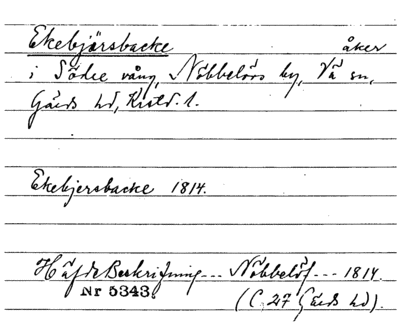 Ekebjörsbacke åker
i Södre vång, Nöbbelövs by, Vä sn,
Gärds hd, Krstd. l.
Ekebjersbacke 1814.
Häfde Beskrifning --- Nöbbelöf --- 1814.
Nr 5343. (C, 27 Gärds hd).